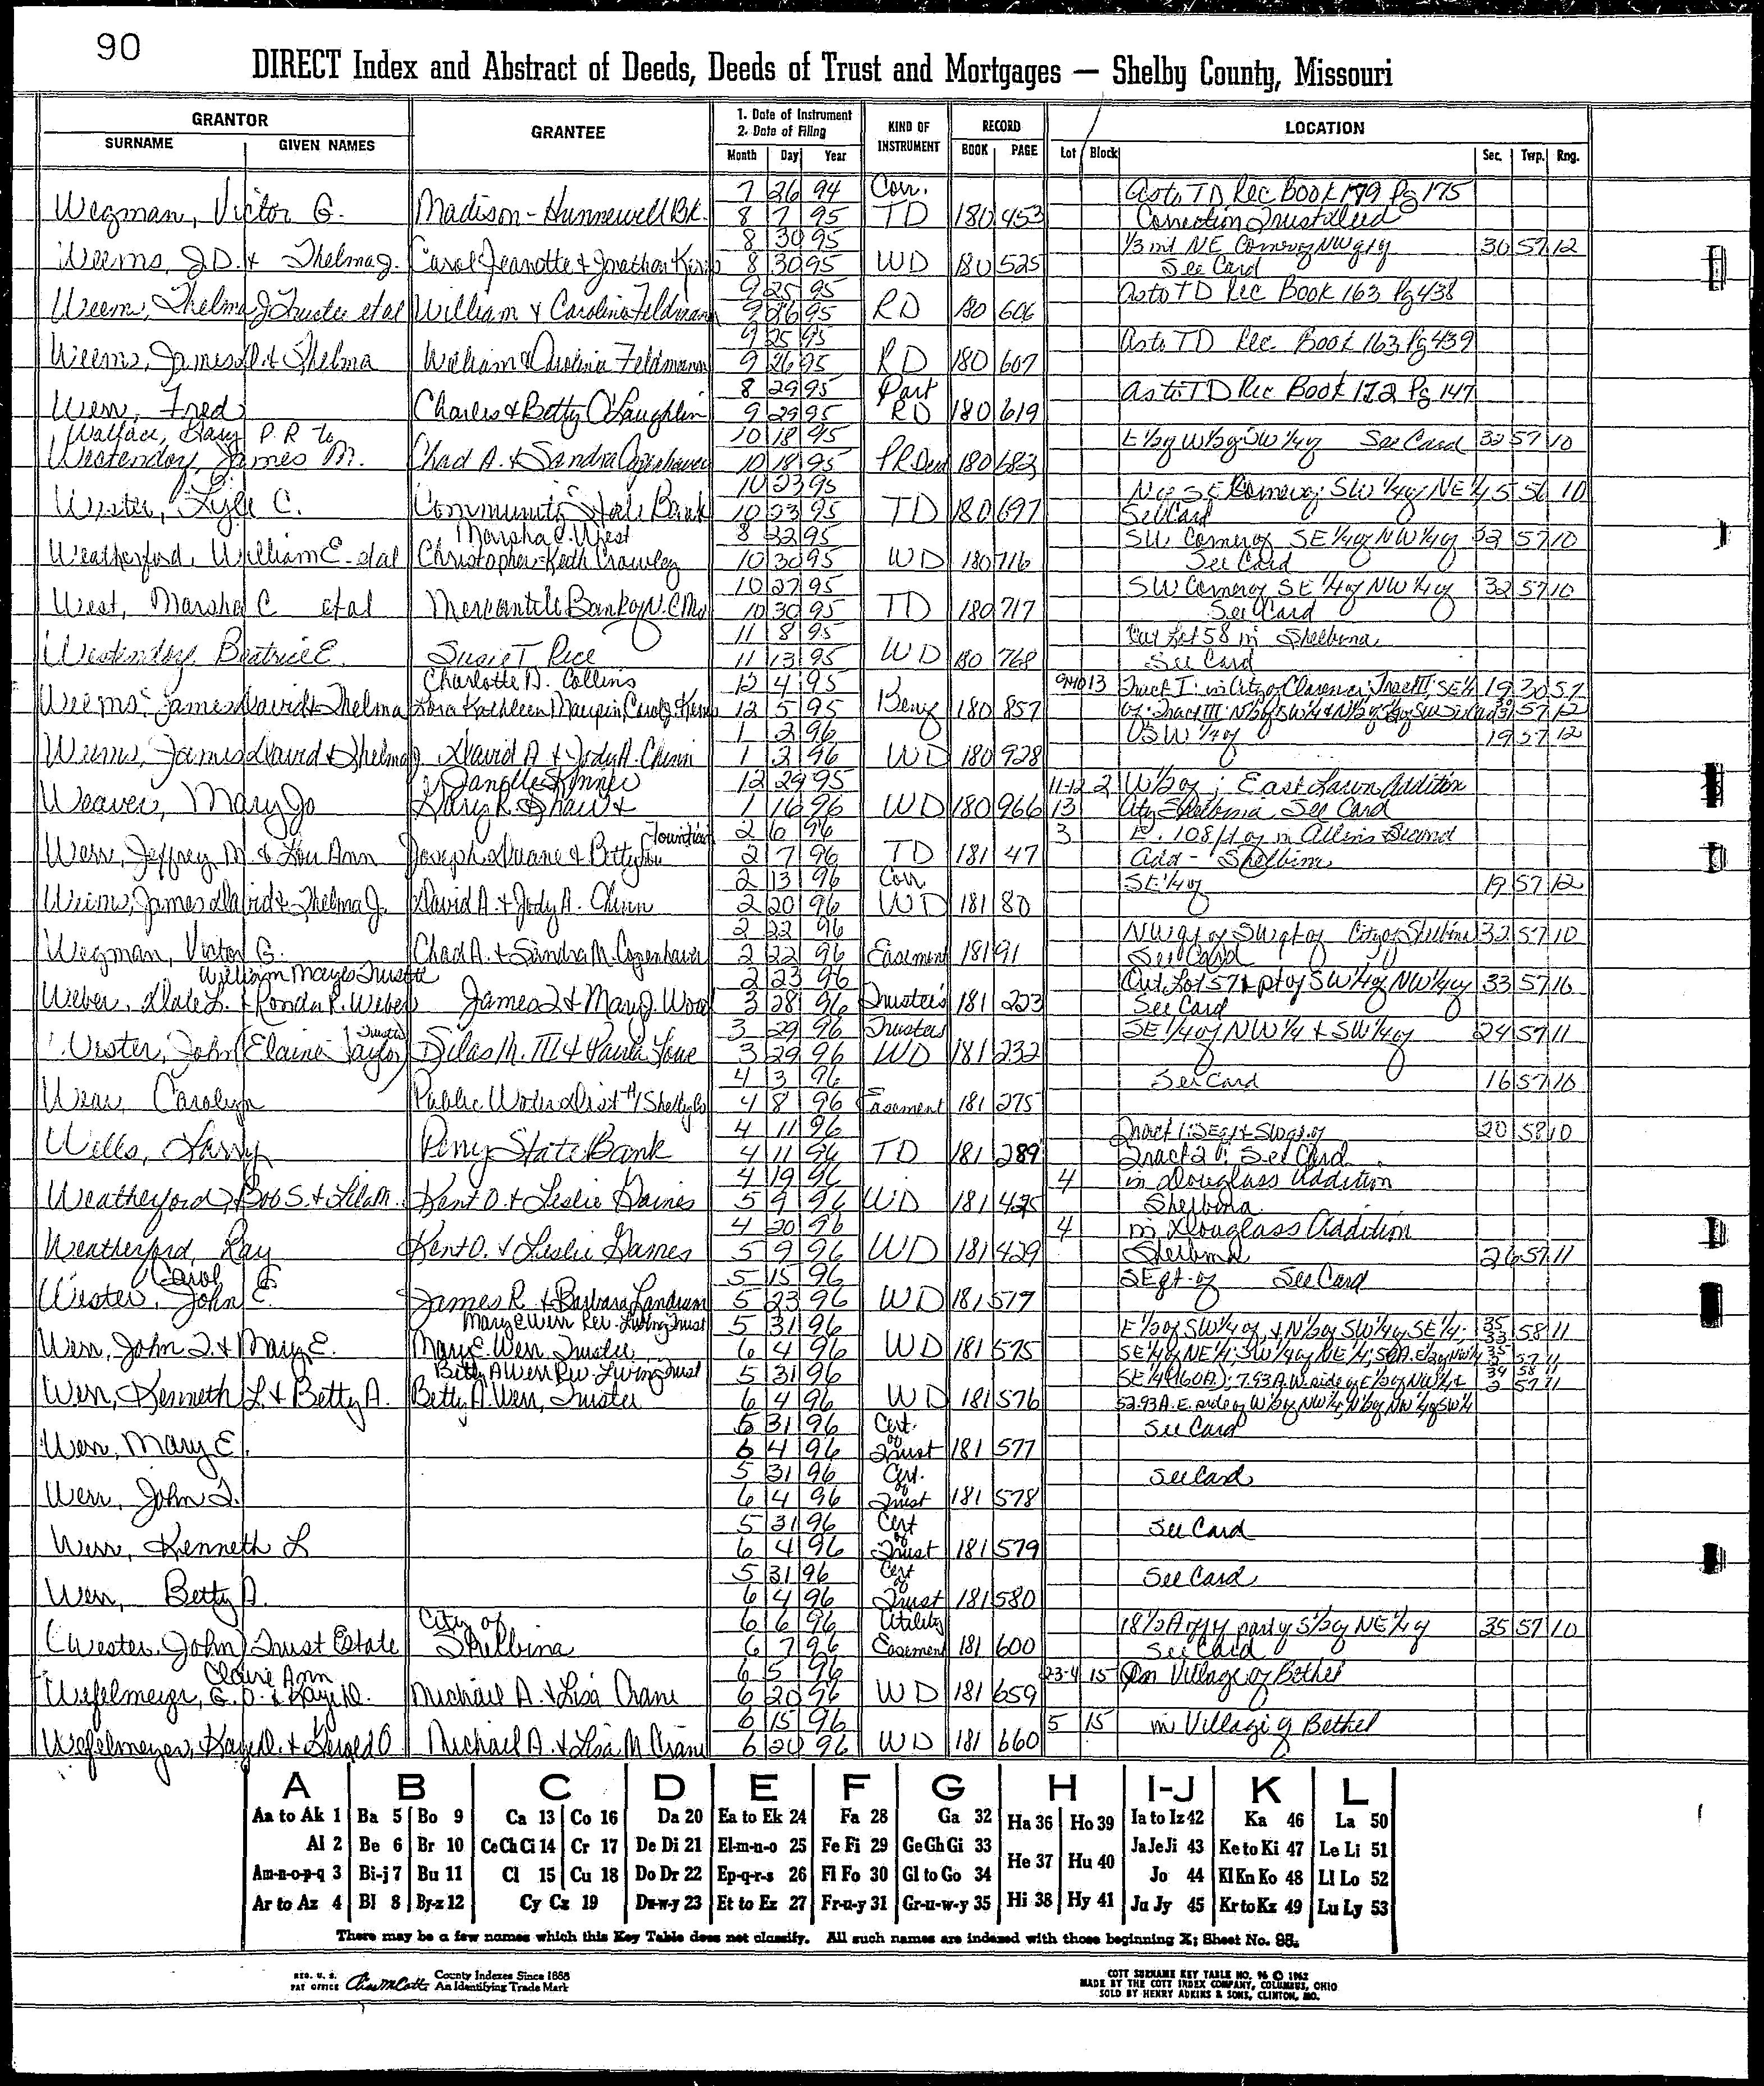 90
DIRECT Index and Abstract of Deeds, Deeds of Trust and Mortgages — Shelby County, Missouri
GRANTOR
SURNAME GIVEN NAMES
GRANTEE
1. Date of Instrument
2. Date of Filing
Month Day Year
KIND OF INSTRUMENT
RECORD
BOOK PAGE
LOCATION
Lot Block Sec. Twp. Rng.
7 26 94 Corr. as to TD Rec Book 179 Pg 175
Wegman, Victor G. Madison-Hunnewell Bk. 8 7 95 TD 180 453 Correction Trust deed
8 30 95 30 57 12
Weems, J.D. & Thelma J. Carol Jeanotte & Jonathan 8 30 95 WD 180 525 See Card
9 25 95 as to TD Rec Book 163 Pg 438
Weems, Thelma J Trustee et al William & Carolina Feldmann 9 26 95 RD 180 606
9 25 95 as to TD Rec. Book 163 Pg 439
Weems, James D. & Thelma William & Carolina Feldmann 9 26 95 RD 180 607
8 29 95 Part as to TD Rec Book 172 Pg 147
Werr, Fred Charles & Betty O'Laughlin 9 29 95 RD 180 619
Wallace, Gary P.R to 10 18 95 E 1/2 of W 1/2 of SW 1/4 of See Card 32 57 10
Westendorf, James M. Chad A. & Sandra Copenhaver 10 18 95 PR Deed 180 683
10 23 95 SW 1/4 of NE 1/4 5 56 10
Wester, Lyle C. Community State Bank 10 23 95 TD 180 697 See Card
Marsha C. West 8 22 95 SW Corner of SE 1/4 of NW 1/4 of 32 57 10
Weatherford, William E. et al Christopher Keith Crawley 10 30 95 WD 180 716 See Card
10 27 95 SW Corner of SE 1/4 of NW 1/4 of 32 57 10
West, Marsha C et al Mercantile Bank of N.C. Mo 10 30 95 TD 180 717 See Card
11 8 95 Out Lot 58 in Shelbina
Westendorf, Beatrice E. Susie T. Rice 11 13 95 WD 180 768 See Card
Charlotte D. Collins 12 4 95 Tract I: in City of Clarence; Tract II: SE 1/4
Weems, James David & Thelma Kathleen Maupin, Carol J. 12 5 95 180 857
1 2 96 SW 1/4 of 19 57 12
Weems, James David & Thelma J. David A. & Jody A. Chinn 1 3 96 WD 180 928
12 29 95 11-12 2 W 1/2 of; East Lawn Addition
Weaver, Mary Jo Gary R. Shaw & 1 16 96 WD 180 966 13 City Shelbina See Card
2 6 96 3 E. 108 ft of in Allens Second
Werr, Jeffrey M. & Lou Ann Joseph Duane & Betty 2 7 96 TD 181 47 Add - Shelbina
2 13 96 Corr SE 1/4 of 19 57 12
Weems, James David & Thelma J. David A. & Jody A. Chinn 2 20 96 WD 181 80
2 22 96 NW qt of SW qt of City of Shelbina 32 57 10
Wegman, Victor G. Chad A. & Sandra M. Copenhaver 2 22 96 Easement 181 91 See Card
William Mayes Trustee 2 23 96 Out Lot 57 & pt of SW 1/4 of NW 1/4 of 33 57 10
Weber, Dale L. & Ronda R. Weber James L & Mary J. Wood 3 28 96 Trustee's 181 223 See Card
Trustee 3 29 96 Trustees SE 1/4 of NW 1/4 & SW 1/4 of 24 57 11
Wester, John (Elaine Taylor) Silas M. III & Paula Lane 3 29 96 WD 181 232
4 3 96 See Card 16 57 10
Wear, Carolyn Public Water Dist #1 Shelby Co 4 8 96 Easement 181 275
4 11 96 20 58 10
Wells, Larry Perry State Bank 4 11 96 TD 181 289 Tract 2 of: See Card
4 19 96 4 in Douglass Addition
Weatherford, Bob S. & Lela M. Kent O. & Leslie Gaines 5 9 96 WD 181 425 Shelbina
4 20 96 4 in Douglass Addition
Weatherford, Ray Kent O. & Leslie Gaines 5 9 96 WD 181 429 Shelbina
Carol J. 5 15 96 SE qt of See Card 26 57 11
Wester, John E. James R. & Barbara Landrum 5 23 96 WD 181 519
Mary E Werr Rev. Living Trust 5 31 96 E 1/2 of SW 1/4 of, & N 1/2 of SW 1/4 of SE 1/4; 35 58 11
Werr, John L. & Mary E. Mary E. Werr Trustee 6 4 96 WD 181 575
Betty A Werr Rev. Living Trust 5 31 96
Werr, Kenneth L. & Betty A. Betty A. Werr, Trustee 6 4 96 WD 181 576
5 31 96 Cert. of See Card
Werr, Mary E. 6 4 96 Trust 181 577
5 31 96 Cert. of See Card
Werr, John L. 6 4 96 Trust 181 578
5 31 96 Cert of See Card
Werr, Kenneth L 6 4 96 Trust 181 579
5 31 96 Cert of See Card
Werr, Betty A. 6 4 96 Trust 181 580
City of 6 6 96 Utility S 1/2 of NE 1/4 of 35 57 10
(Wester, John) Trust Estate Shelbina 6 7 96 Easement 181 600 See Card
Claire Ann 6 5 96 23-4 15 in Village of Bethel
Wefelmeyer, G.O. & Kaye D. Michael A. & Lisa Crane 6 20 96 WD 181 659
6 15 96 5 15 in Village of Bethel
Wefelmeyer, Kaye D. & Gerald O. Michael A. & Lisa M. Crane 6 20 96 WD 181 660
A B C D E F G H I-J K L
Aa to Ak 1 Ba 5 Bo 9 Ca 13 Co 16 Da 20 Ea to Ek 24 Fa 28 Ga 32 Ha 36 Ho 39 Ia to Iz 42 Ka 46 La 50
Al 2 Be 6 Br 10 Ce Ch Ci 14 Cr 17 De Di 21 El-m-n-o 25 Fe Fi 29 Ge Gh Gi 33 He 37 Hu 40 Ja Je Ji 43 Ke to Ki 47 Le Li 51
Am-n-o-p-q 3 Bi-j 7 Bu 11 Cl 15 Cu 18 Do Dr 22 Ep-q-r-s 26 Fl Fo 30 Gl to Go 34 Jo 44 Kl Kn Ko 48 Ll Lo 52
Ar to Az 4 Bl 8 By-z 12 Cy Cz 19 Du-w-y 23 Et to Ez 27 Fr-u-y 31 Gr-u-w-y 35 Hi 38 Hy 41 Ju Jy 45 Kr to Kz 49 Lu Ly 53
There may be a few names which this Key Table does not classify. All such names are indexed with those beginning X; Sheet No. 95.
REG. U. S. PAT OFFICE County Indexes Since 1888
An Identifying Trade Mark
COTT SURNAME KEY TABLE NO. 96 © 1962
MADE BY THE COTT INDEX COMPANY, COLUMBUS, OHIO
SOLD BY HENRY ADKINS & SONS, CLINTON, MO.